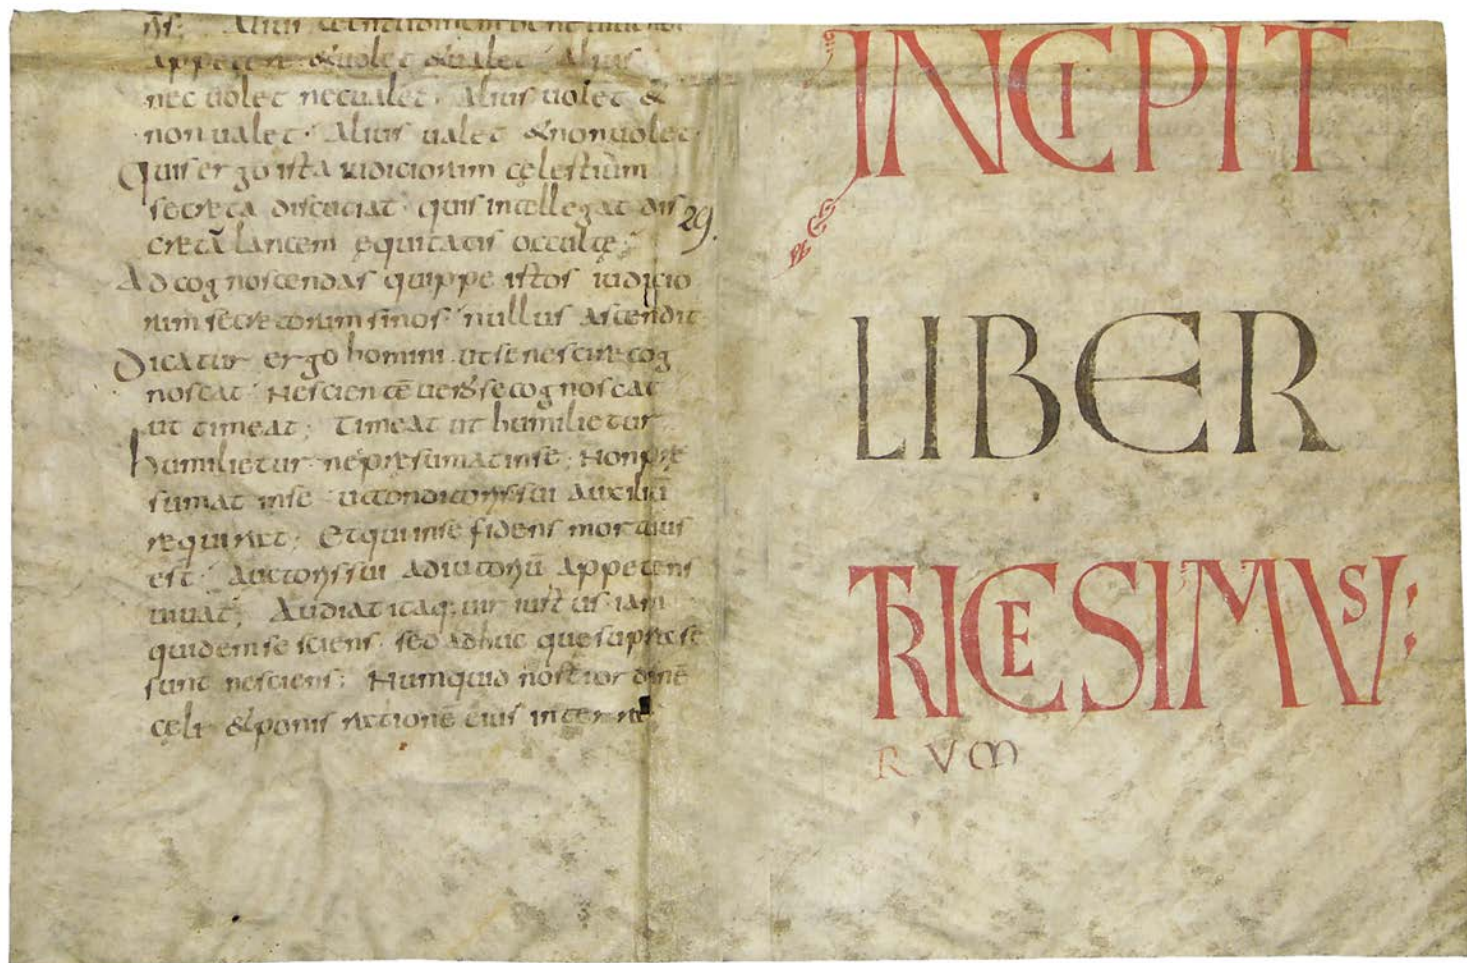 appetere & uolet & ualet. Alius
nec uolet nec ualet. Alius uolet &
non ualet. Alius ualet & non uolet.
Quis ergo ista iudiciorum cęlestium
secreta discutiat. quis intellegat dis
cretā lancem ęquitatis occultę;
29.
Ad cognoscendas quippe istos iudicio
rum secretorum sinos. nullus ascendit
Dicatur ergo homini ut se nescire cog
noscat. Nescientē uero se cognoscat
ut timeat; Timeat ut humilietur
humilietur ne pręsumat in se; Non prę
sumat in se ut conditoris sui auxiliū
requirat; Et qui in se fidens mortuus
est. Auctoris sui adiutoriū appetens
uiuat; Audiat itaq. uir iustus iam
quidem se sciens. sed adhuc que supra se
sunt nesciens; Numquid nosti ordinē
cęli & ponis rationē eius in terra
INCIPIT
LIBER
TRICESIMVS;
RVM